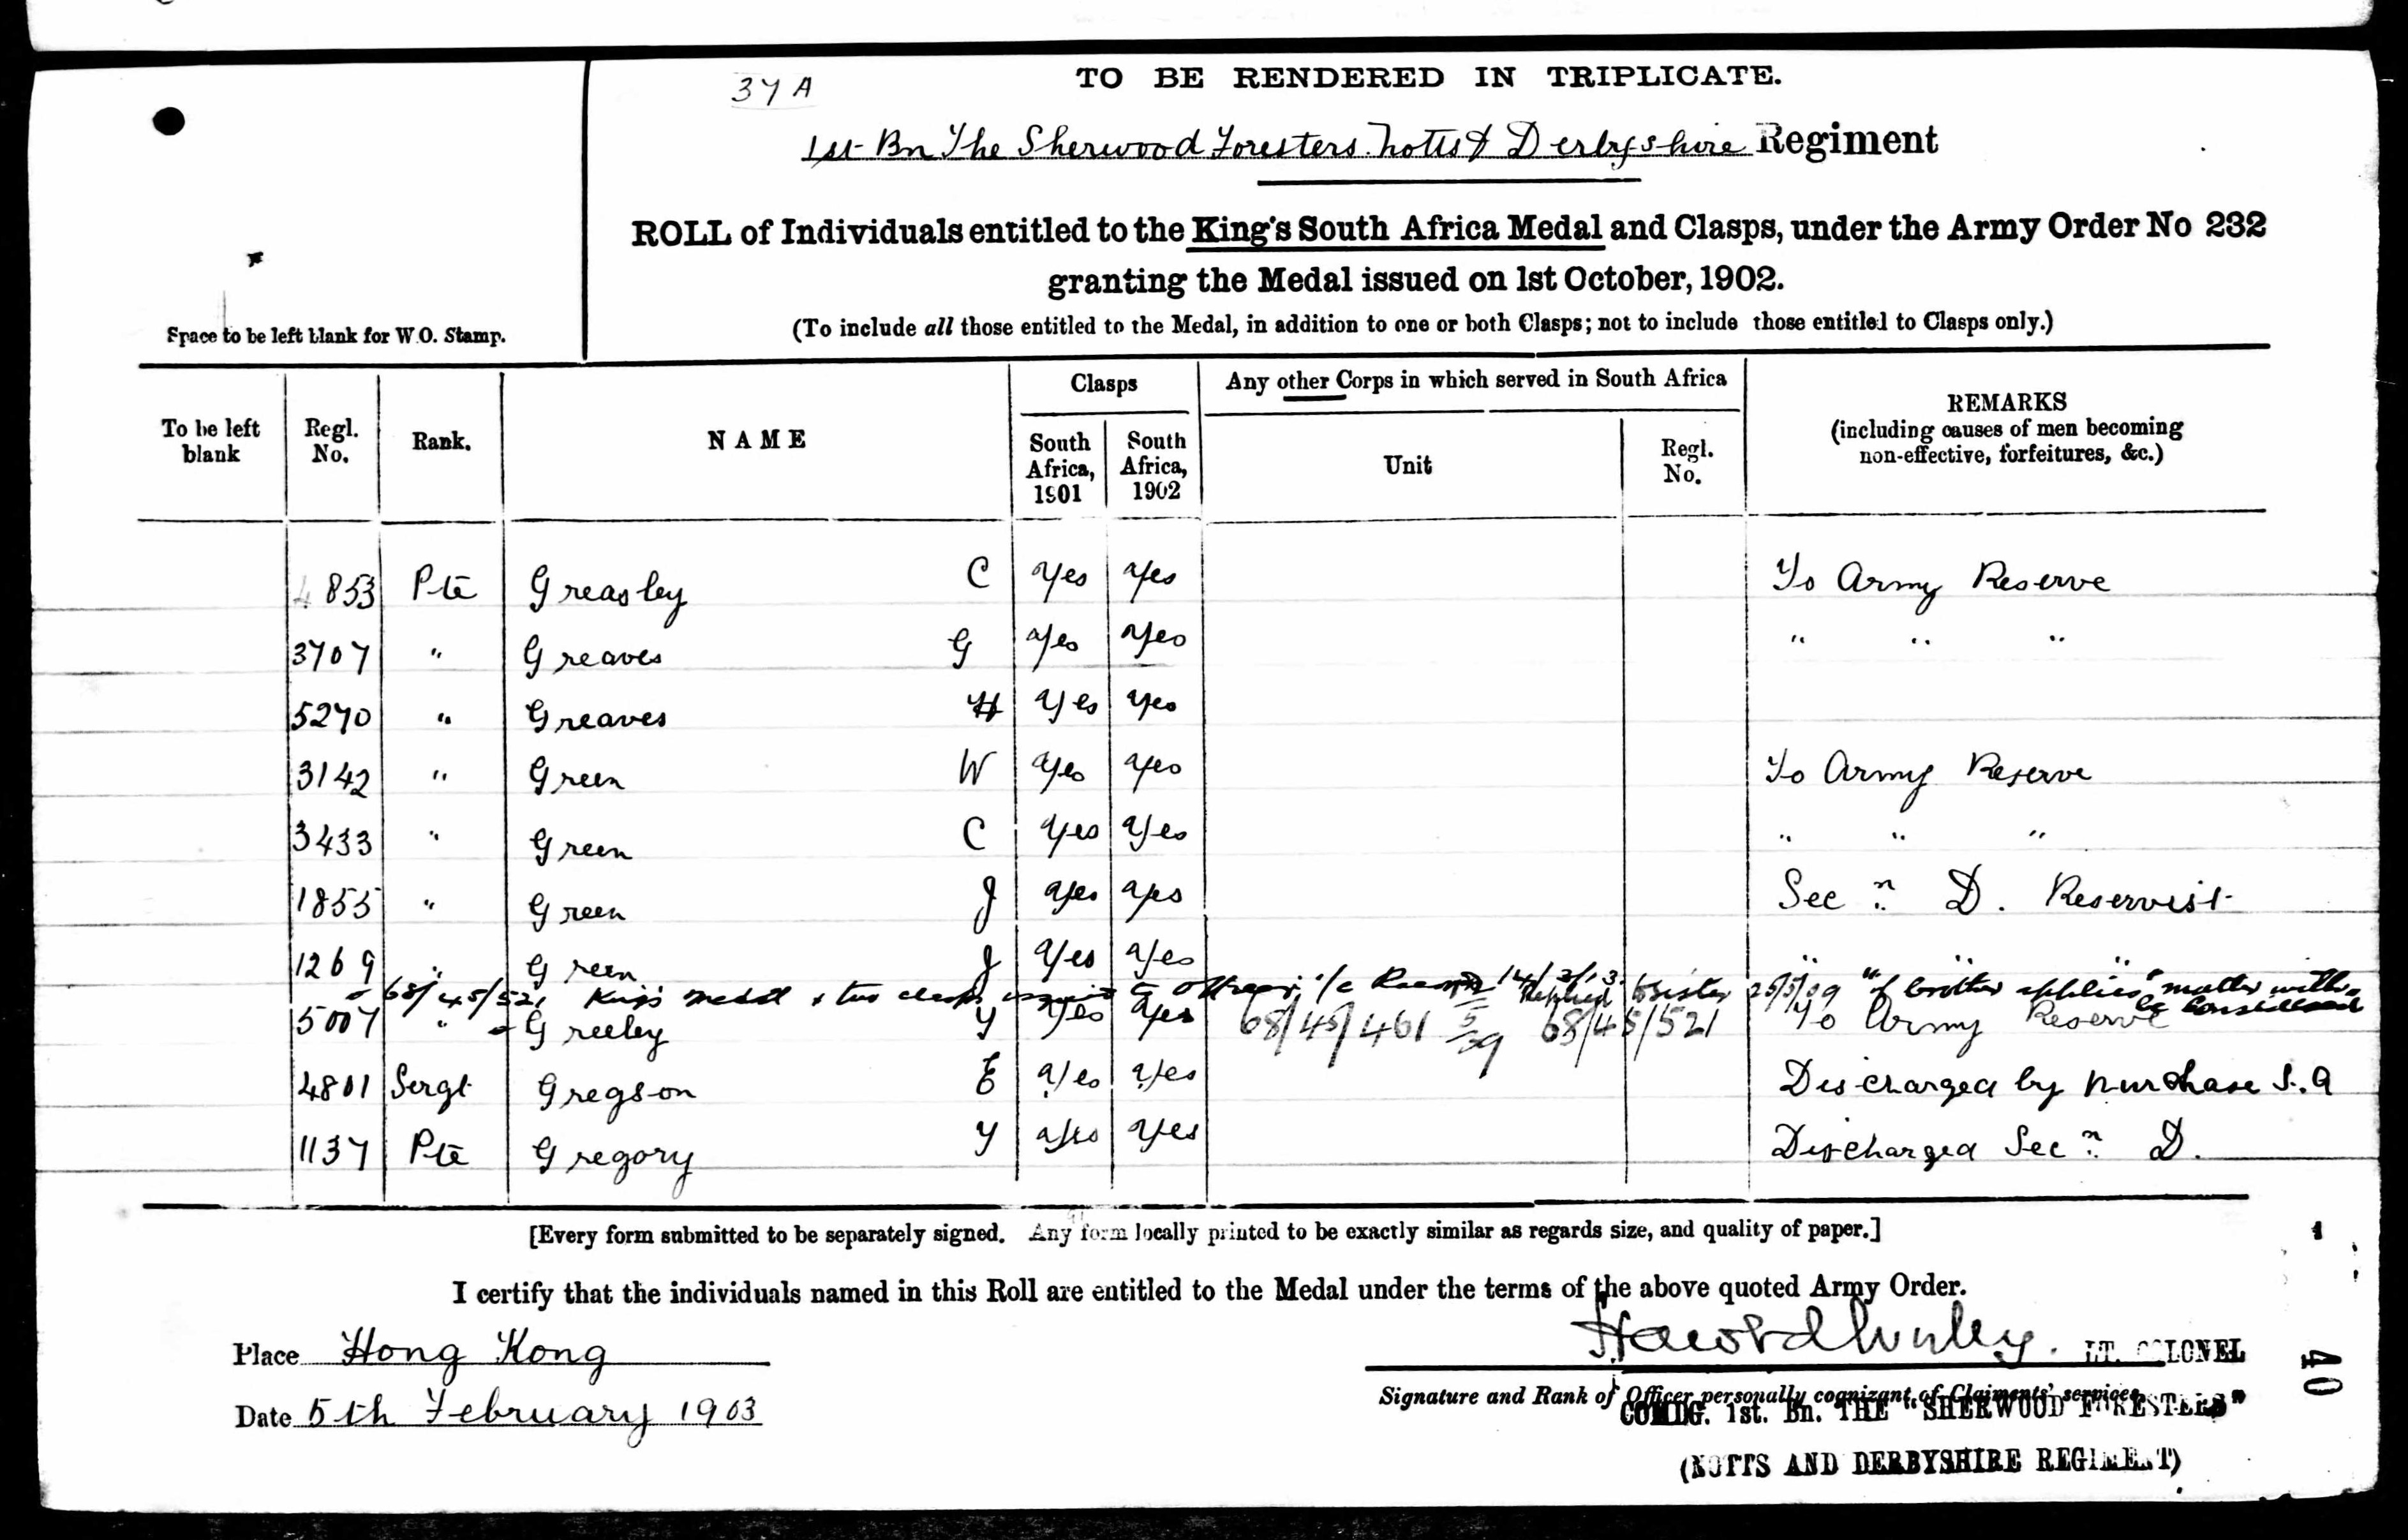 37 A
TO BE RENDERED IN TRIPLICATE.
1st Bn The Sherwood Foresters Notts & Derbyshire Regiment
ROLL of Individuals entitled to the King's South Africa Medal and Clasps, under the Army Order No 232
granting the Medal issued on 1st October, 1902.
(To include all those entitled to the Medal, in addition to one or both Clasps; not to include those entitled to Clasps only.)
Space to be left blank for W.O. Stamp.
To be left blank
Regl. No.
Rank.
NAME
Clasps
South Africa, 1901
South Africa, 1902
Any other Corps in which served in South Africa
Unit
Regl. No.
REMARKS
(including causes of men becoming
non-effective, forfeitures, &c.)
4853 Pte Greasley C Yes Yes To Army Reserve
3707 " Greaves G Yes Yes " " "
5270 " Greaves H Yes Yes
3142 " Green W Yes Yes To Army Reserve
3433 " Green C Yes Yes " " "
1855 " Green J Yes Yes Secn D. Reservist
1269 " Green J Yes Yes " " "
68/45/521 King's medal & two clasps to Officer i/c Records 14/3/13 Replied to Sister 25/5/09 "if brother applies matter will be considered"
5007 " Greeley Y Yes Yes 68/45/461 5/09 68/45/521 To Army Reserve
4801 Sergt Gregson E Yes Yes Discharged by purchase S.A
1137 Pte Gregory Y Yes Yes Discharged Secn D.
[Every form submitted to be separately signed. Any form locally printed to be exactly similar as regards size, and quality of paper.]
I certify that the individuals named in this Roll are entitled to the Medal under the terms of the above quoted Army Order.
Place Hong Kong
LT. COLONEL
Date 5th February 1903
Signature and Rank of Officer personally cognizant of Claimants' services
COMDG. 1st. Bn. THE "SHERWOOD FORESTERS"
(NOTTS AND DERBYSHIRE REGIMENT)
1
40